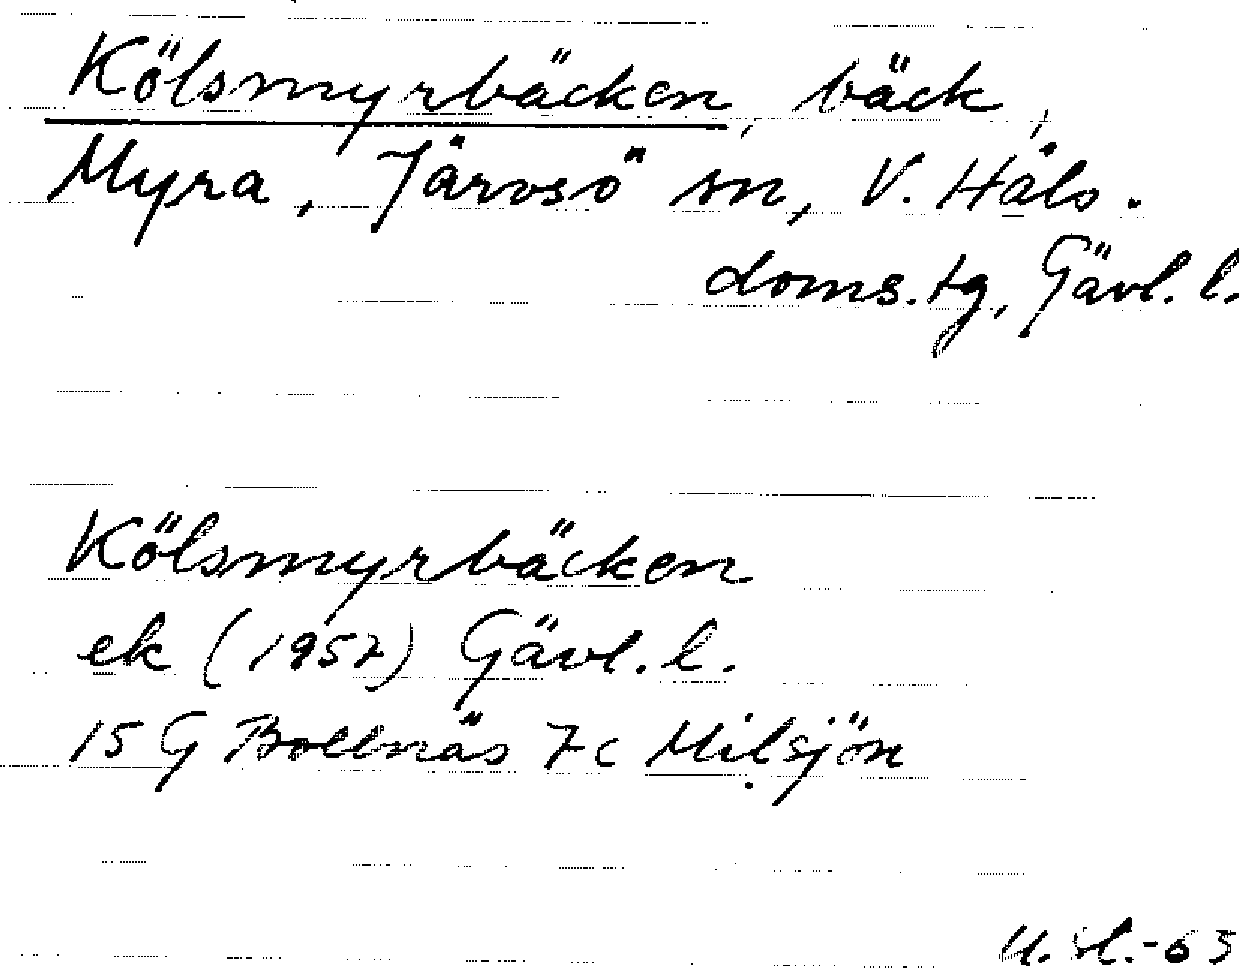 Kölsmyrbäcken, bäck,
Myra, Järvsö sn, V. Häls.
doms.tg, Gävl. l.
Kölsmyrbäcken
ek (1957) Gävl. l.
15 G Bollnäs 7 c Milsjön
-65